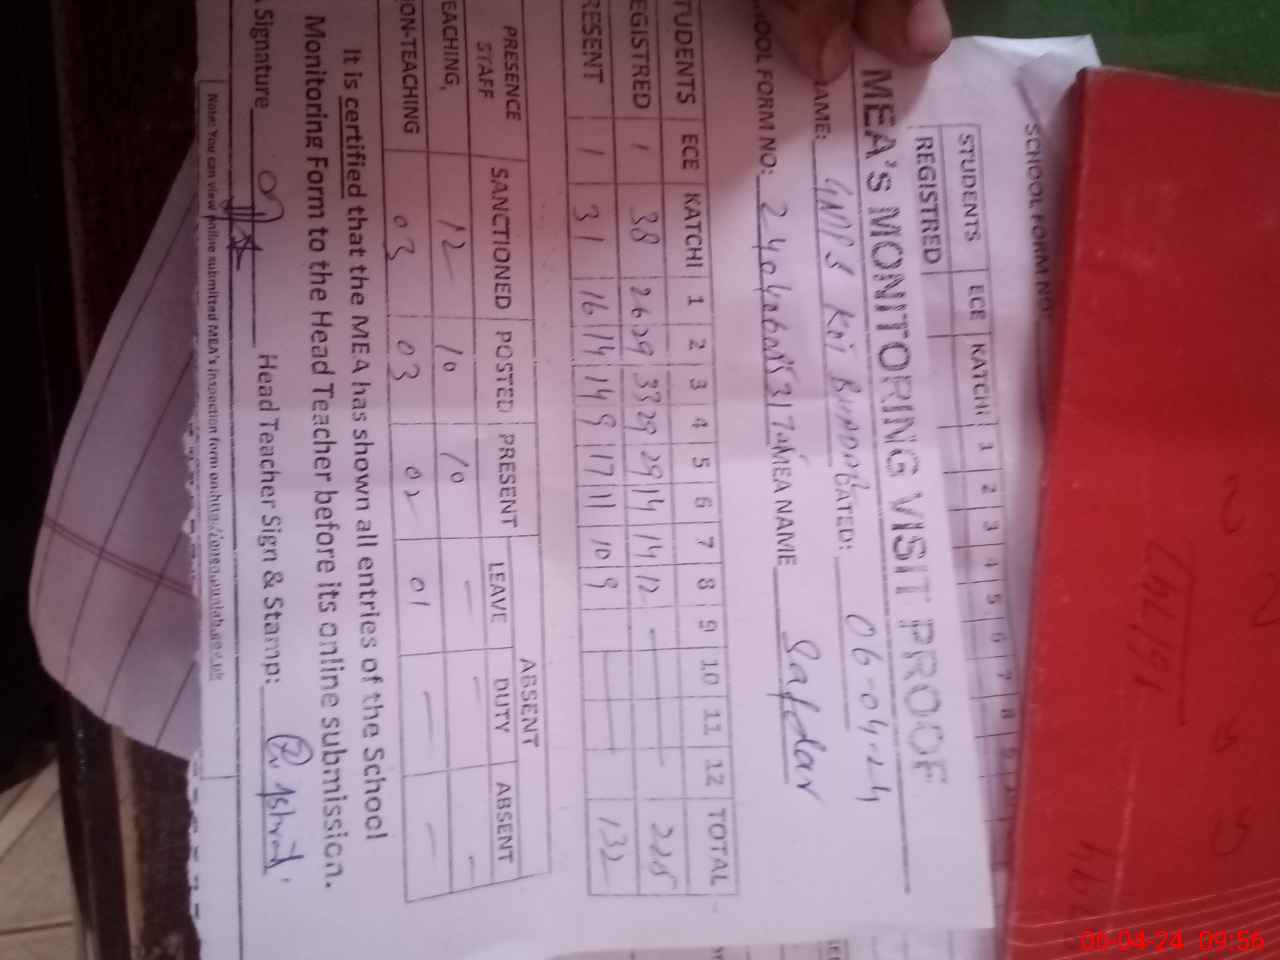 SCHOOL FORM NO:
STUDENTS ECE KATCHI 1 2 3 4 5 6 7 8 9
REGISTRED
MEA'S MONITORING VISIT PROOF
AME: DATED: 06-04-24
OOL FORM NO: MEA NAME Safdar
TUDENTS ECE KATCHI 1 2 3 4 5 6 7 8 9 10 11 12 TOTAL
EGISTRED 1 38 26 29 33 29 29 14 14 12 225
RESENT 1 31 16 14 14 9 17 11 10 9 132
PRESENCE STAFF SANCTIONED POSTED PRESENT ABSENT
LEAVE DUTY ABSENT
EACHING, 12 10 10 - - -
ON-TEACHING 03 03 02 01 - -
It is certified that the MEA has shown all entries of the School
Monitoring Form to the Head Teacher before its online submission.
Signature Head Teacher Sign & Stamp:
Note: You can view online submitted MEA's inspection form on:
06-04-24 09:56